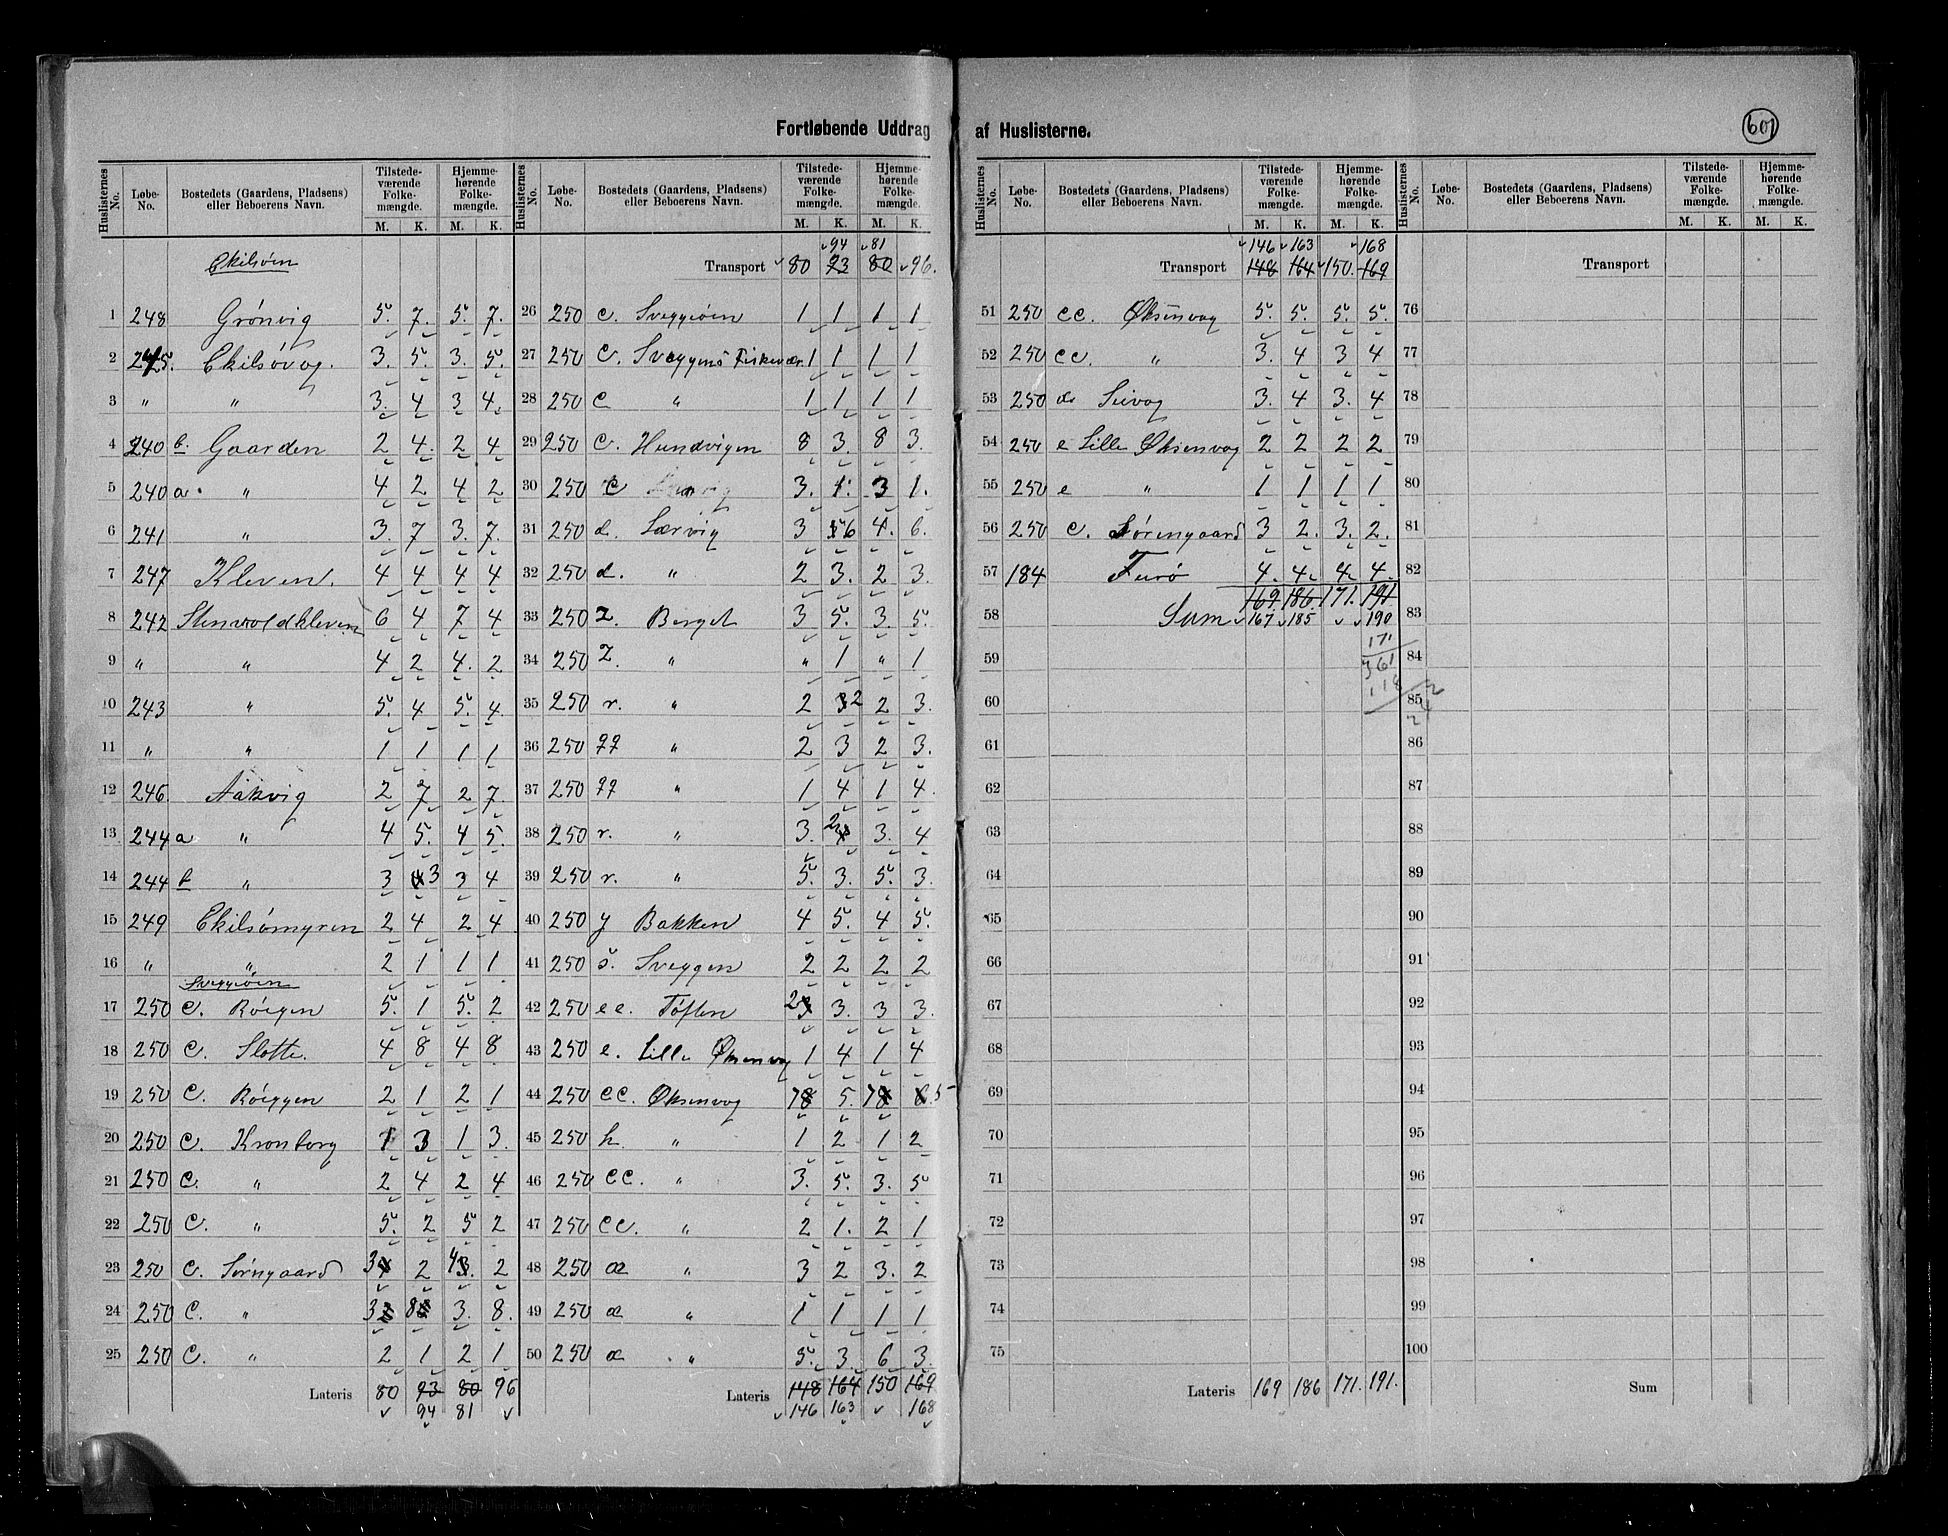 Fortløbende Uddrag af Huslisterne.
601
Huslisternes No. | Løbe-No. | Bostedets (Gaardens, Pladsens) eller Beboerens Navn. | Tilstedeværende Folkemængde. M. K. | Hjemmehørende Folkemængde. M. K.
Ekilsøen
1 248 Grønvig 5. 7. 5. 7.
2 245. Ekilsøvog. 3. 5. 3. 5.
3 " " 3. 4 3 4.
4 240 b. Gaarden 2 4. 2 4
5 240 a. " 4 2 4 2
6 241 " 3. 7 3. 7.
7 247 Kleven. 4 4 4 4
8 242 Stenvoldkleven 6 4 7 4
9 " " 4 2 4. 2
10 243 " 5. 4 5. 4.
11 " " 1 1 1 1
12 246. Aakvig 2 7 2 7.
13 244 a " 4 5. 4 5.
14 244 b " 3 3 3 4
15 249 Ekilsømyren 2 4 2 4
16 " " 2 1 1 1
Sveggøen
17 250 c. Röegen 5. 1 5. 2
18 250 c. Slotte. 4 8 4 8
19 250 c. Röeggen 2 1 2 1
20 250 c. Kronborg 1 3 1 3.
21 250 c. " 2 4 2 4
22 250 c. " 5. 2 5 2
23 250 c. Sørngaard 3 2 4 2
24 250 c. " 3 8 3. 8.
25 250 c. " 2 1 2 1
Lateris 80 93 80 96
94 81
Transport 80 93 80 96.
94 81
26 250 c. Sveggøen 1 1 1 1
27 250 c. Sveggens Fiskevær. 1 1 1 1
28 250 c " 1 1 1 1
29 250 c. Hundvigen 8 3. 8 3.
30 250 c 3. 1. 3 1.
31 250 d. Lærvig 3 6 4. 6.
32 250 d. " 2 3. 2 3.
33 250 z. Berget 3 5. 3. 5.
34 250 z. " " 1 " 1
35 250 r. " 2 2 2 3.
36 250 qq " 2 3 2 3.
37 250 qq " 1 4 1 4.
38 250 r. " 3. 2 3. 4
39 250 r. " 5. 3. 5. 3.
40 250 y Bakken 4 5. 4 5.
41 250 ö. Sveggen 2 2 2 2
42 250 ee. Tøften 2 3. 3 3.
43 250 e. Lille Øksenvog 1 4 1 4
44 250 cc. Øksenvog 7 5. 7 5
45 250 h. " 1 2 1 2
46 250 cc. " 3. 5. 3. 5
47 250 cc. " 2 1. 2 1
48 250 æ " 3 2 3. 2
49 250 æ " 1 1 1 1
50 250 æ " 5. 3. 6 3.
Lateris 148 164 150 169
146 163 168
Transport 148 164 150. 169
146 163 168
51 250 cc. Øksenvog 5. 5. 5. 5.
52 250 cc. " 3. 4 3 4
53 250 Sivog 3. 4 3. 4
54 250 e Lille Øksenvog 2 2 2 2
55 250 e " 1 1 1 1
56 250 c. Sörengaard 3 2. 3. 2.
57 184 Furö 4. 4. 4. 4.
169. 186. 171. 191
58 Sum 167 185 190
59 171
361
60 118
61
62
63
64
65
66
67
68
69
70
71
72
73
74
75
Lateris 169 186 171. 191.
Transport
76
77
78
79
80
81
82
83
84
85
86
87
88
89
90
91
92
93
94
95
96
97
98
99
100
Sum